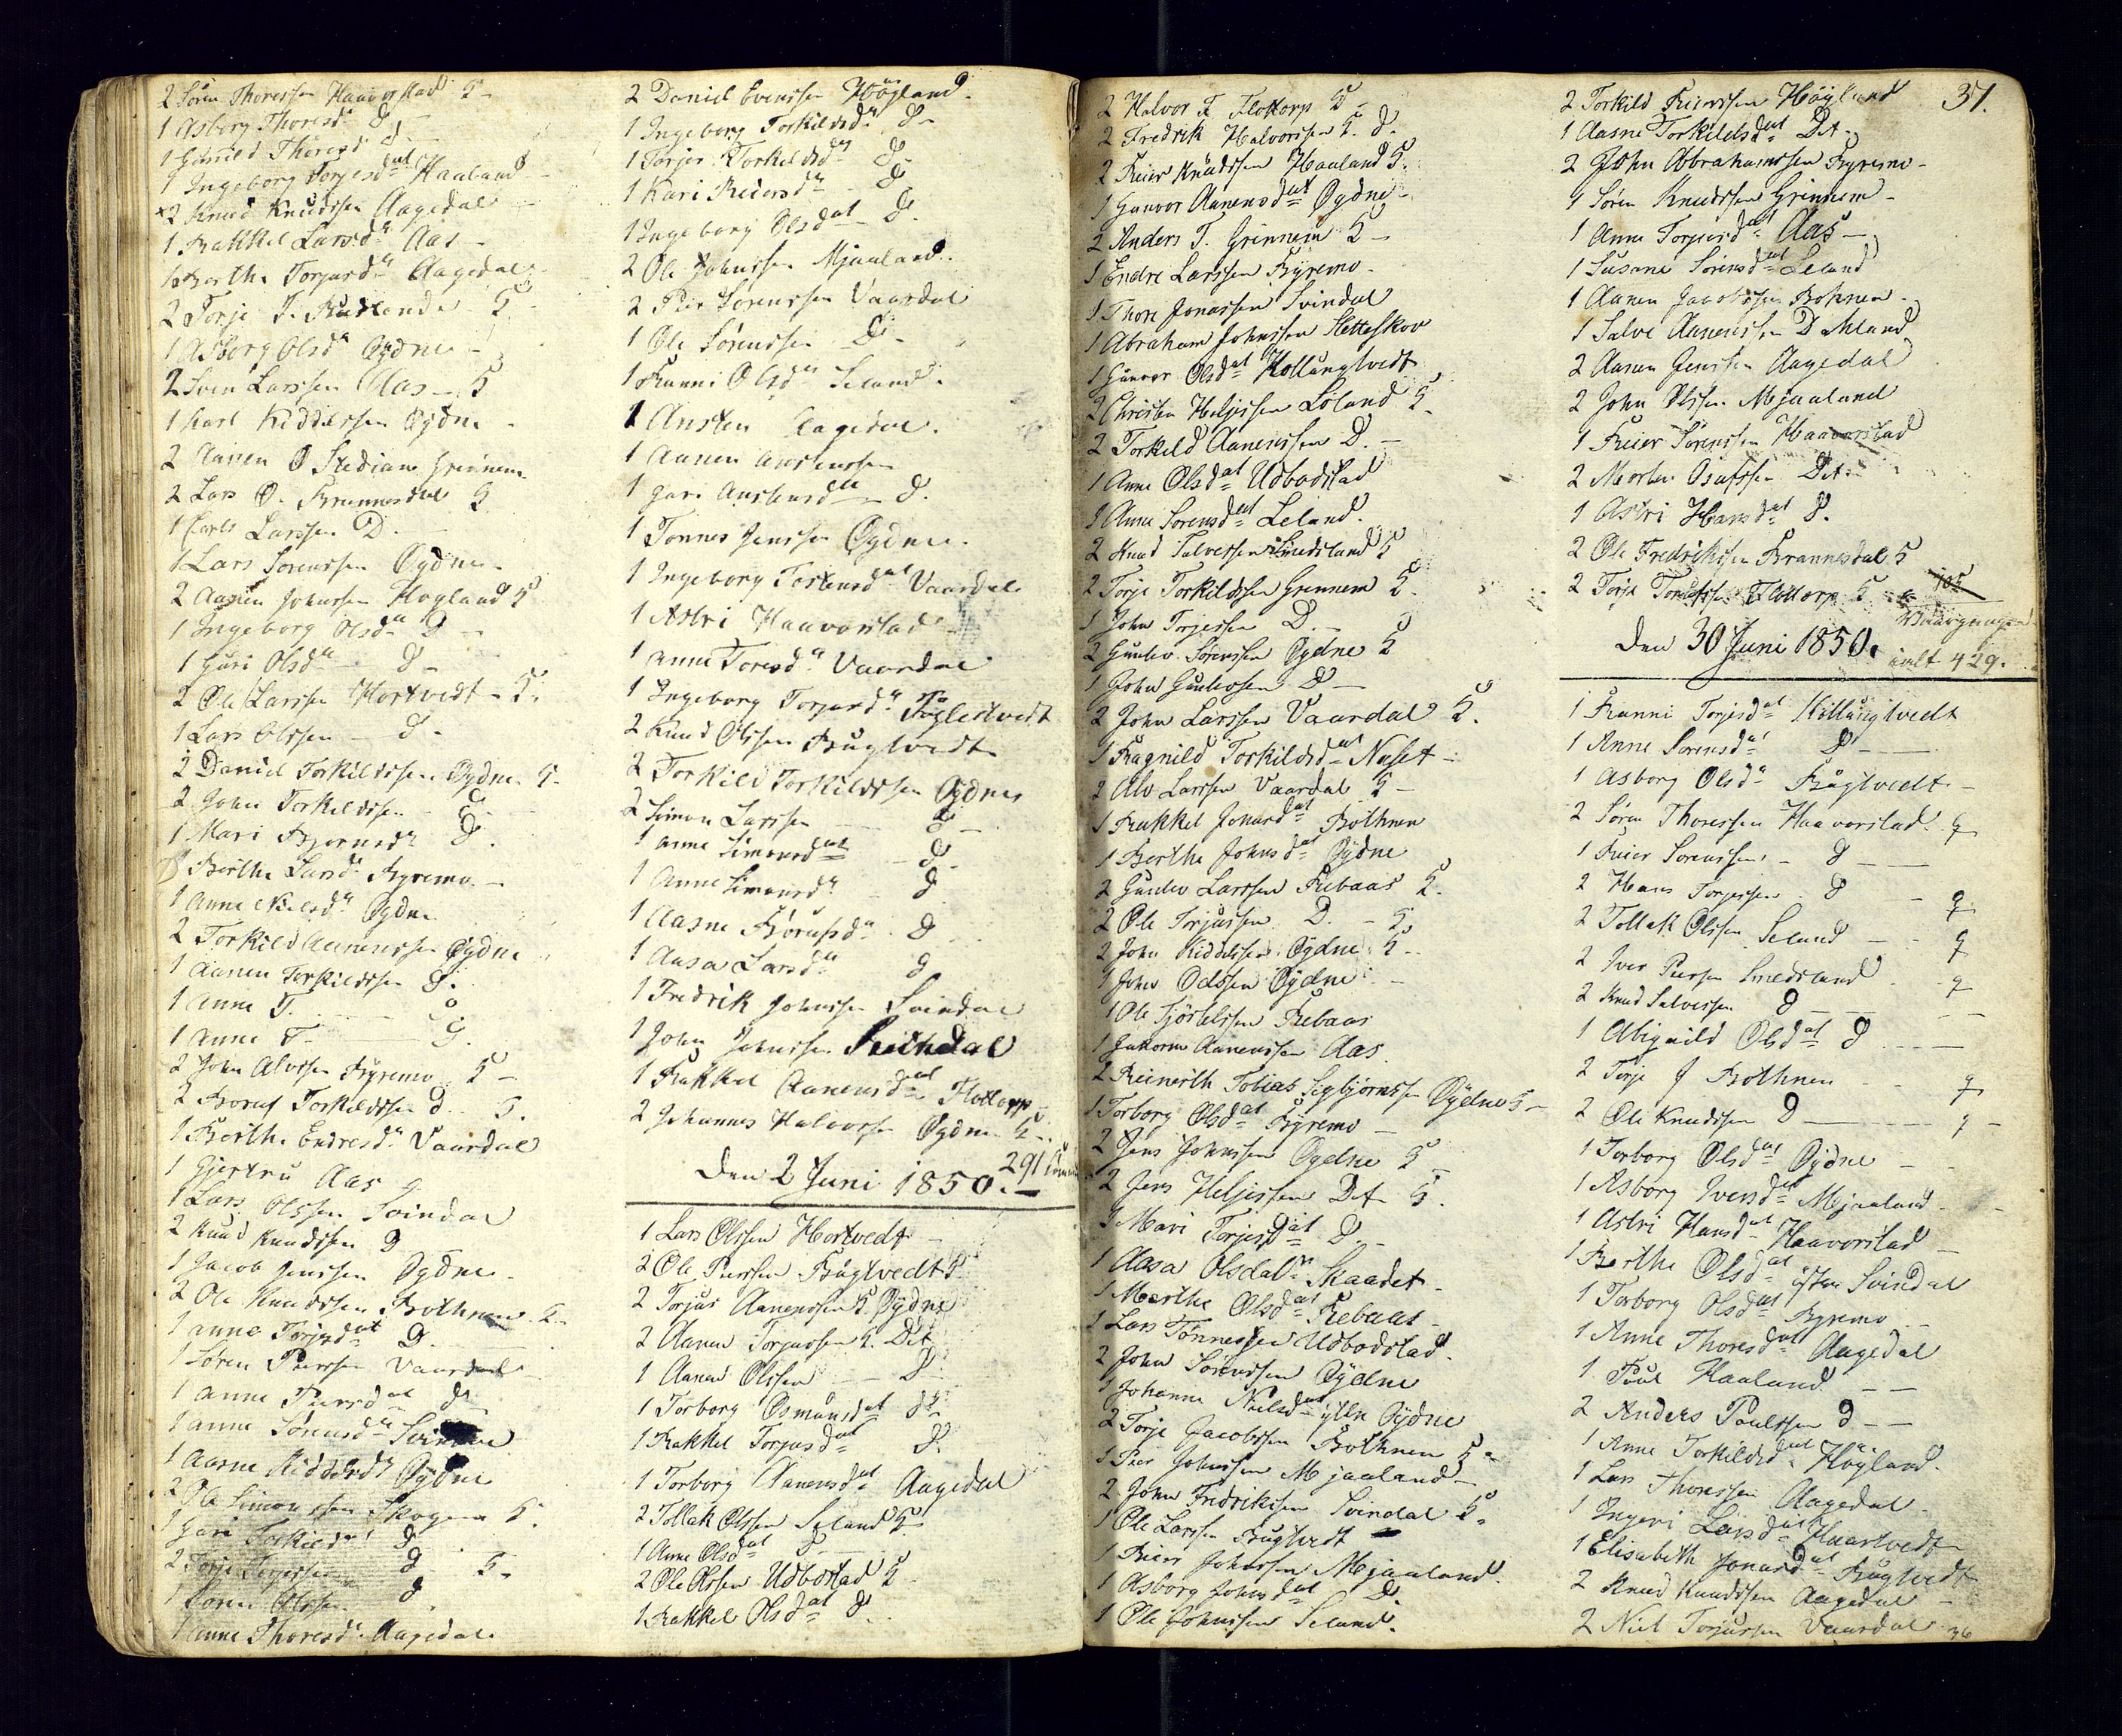 2 Sören Thoressen Haavorstad 5 -
1 Asborg Thoresd. D -
1 Gunild Thoresd D -
1 Ingeborg Torjesdat Haaland -
2 Knud Knudssen Aagedal
1 Rakkel Larsd. Aas -
1 Berthe Torjusd. Aagedal -
2 Torje T. 5.
1 Asborg Olsd. Øydne -
2 Sven Larssen Aas - 5
1 Kiddelssen Øydne -
2 Aanen O Grinnem
2 Lars O. Brannesdal 5
1 Larssen D.
1 Lars Sörenssen Øydne -
2 Aanen Johnssen Høgland 5
1 Ingeborg Olsd. D -
1 Guri Olsd. - D -
2 Ole Larssen Hortvedt - 5.
1 Lars Olssen - D -
2 Daniel Torkildssen Øydne 5 -
2 John Torkildssen - D -
1 Mari Bjornsd. D.
1 Berthe Larsd. Byremo -
1 Anne Nielsd. Øydne
2 Torkild Aanenssen Øydne
1 Aanen Torkildssen D.
1 Anne T. D.
1 Anne T D.
2 John Alvssen Byremo 5 -
2 Torkildssen D. 5.
1 Berthe Endresd. Vaardal
1 Gjertru Aas
1 Lars Olssen Svindal
2 Knud Knudssen D
1 Jacob Jenssen Øydne -
2 Ole Knudssen Bothnen 5 -
1 Anne Torjusdat D.
1 Sören Peerssen Vaardal
1 Anne Peersdat D
1 Anne Sörensd. Svindal
1 Aasne Kiddelsd. Øydne
2 Ole Simonssen Skogen 5.
1 Guri Torkildsdat D
2 Torje Torjessen D 5 -
1 Sören Olssen D.
1 Anne Thoresd. Aagedal
2 Daniel Evenssen Høgland -
1 Ingeborg Torkildsd. D -
1 Torjer Torkildsd. D -
1 Kari Reiersd. - D
1 Ingeborg Olsdat - D.
2 Ole Johnssen Mjaaland.
2 Peer Sörenssen Vaardal
1 Ole Sörenssen - D -
1 Ranni Olsd. Seland.
1 Ansten Aagedal.
1 Aanen Anstenssen
1 Anstensd. D.
1 Tönnes Jenssen Øydne -
1 Ingeborg Tostensdat Vaardal
1 Astri Haavorstad
1 Anne Toresd. Vaardal
1 Ingeborg Torjusd. Fuglestvedt
2 Knud Olssen Buglvedt
2 Torkild Torkildssen Øydne
2 Simon Larssen D -
1 Anne Simonsdat - D -
1 Anne Simonsd. - D
1 Aasne D
1 Aasa Larsd. D
1 Fredrik Johnssen Svindal
1 John Johnssen Svindal
1 Rakkel Aanensdat Flottorp
2 Johannes Halvorssen Øydne 5 -
291
Den 2 Juni 1850. -
1 Lars Olssen Hortvedt -
2 Ole Peerssen Buglvedt 5
2 Torjus Aanenssen 5. Øydne
2 Aanen Torjussen 5. Dit
1 Aanen Olssen - D
1 Torborg Osmunsdat D -
1 Rakkel Torjusdat D.
1 Torborg Aanensdat Aagedal
2 Tollak Olssen Seland 5
1 Anne Olsdat D -
2 Ole Olssen Udbostad 5 -
1 Rakkel Olsdat D.
37.
2 Halvor F Flottorp 5 -
2 Fredrik Halvorssen 5. D.
2 Reier Knudssen Haaland 5.
1 Gunvor Aanensdat Øydne -
2 Anders T. Grinnem 5 -
1 Endre Larssen Byremo -
1 Thore Jonassen Svindal
1 Abraham Johnssen Sletteskov
1 Gunvor Olsdat Kollungtvedt
2 Christen Heljessen Löland 5 -
2 Torkild Aanenssen D. -
1 Anne Olsdat Udbodstad
1 Anne Sörensdat Seland.
2 Knud Salvessen Smedsland 5
2 Torje Torkildssen Grinnem 5 -
1 John Torjessen D. -
2 Gunlev Sörenssen Øydne 5
1 John Gunlevssen D -
2 John Larssen Vaardal 5.
1 Ragnild Torkildsdat Neset -
2 Alv Larssen Vaardal 5 -
1 Rakkel Jonasdat Bothnen
1 Berthe Johnsdat Øydne
2 Gunlev Larssen Rebaas 5.
2 Ole Torjussen D. - 5
2 John Kiddelssen Øydne 5 -
1 John Odssen Øydne -
1 Ole Rebaas
1 Guttorm Aanenssen Aas.
2 Reinerth Tobias Sigbjörnssen Øydne 5 -
1 Torborg Olsdat Byremo -
2 Jens Johnssen Øydne 5 -
2 Jens Heljessen Det 5.
1 Mari Torjesdat D -
1 Aasa Olsdat Skaadet -
1 Marthe Olsdat Rebaas -
1 Lars Tönnessen Udbodstad.
2 John Sörenssen Øydne
1 Johanne Nielsdat ytte Øydne
2 Torje Jacobssen Bothnen 5 -
1 Peer Johnssen Mjaaland -
2 John Fredrikssen Svindal 5 -
1 Ole Larssen Buglvedt -
1 Reier Johnssen Mjaaland.
1 Asborg Johnsdat D.
1 Ole Johnssen Seland.
2 Torkild Reierssen Høyland
1 Aasne Torkildsdat Det -
2 John Abrahamssen Byremo -
1 Sören Knudssen Grinnem -
1 Anne Torjusdat Aas -
1 Susane Sörensdat Seland
1 Aanen Jacobssen Bothnen -
1 Salve Aanenssen
2 Aanen Jenssen Aagedal
2 John Olssen Mjaaland
1 Reier Sörenssen Haavorstad
2 Morten Det -
1 Astri Hansdat D.
2 Ole Fredrikssen Brannesdal 5
2 Torje Flottorp 5
105
Den 30 Juni 1850.
ialt 429.
1 Ranni Torjesdat Kollungtvedt
1 Anne Sörensdat D -
1 Asborg Olsd. Buglvedt -
2 Sören Thoressen Haavorstad. 9
1 Reier Sörenssen - D -
2 Hans Torjessen D - 9
2 Tollak Olssen Seland - 9
2 Iver Peerssen Smedsland 9
2 Knud Salvessen D -
1 Abigaild Olsdat D -
2 Torje J Bothnen 9
2 Ole Knudssen D - 9 -
1 Torborg Olsdat Øydne -
1 Asborg Iversdat Mjaaland -
1 Astri Hansdat Haavorstad -
1 Berthe Olsdat Svindal
1 Torborg Olsdat Byremo -
1 Anne Thoresdat Aagedal
1 Haaland -
2 Anders Poulssen D -
1 Anne Torkildsdat Høyland -
1 Lars Thoressen Aagedal -
1 Ingeri Larsdat Haartvedt
1 Elisabeth Jonasdat Buglvedt
2 Knud Knudssen Aagedal -
2 Niel Torjussen Vaardal
36